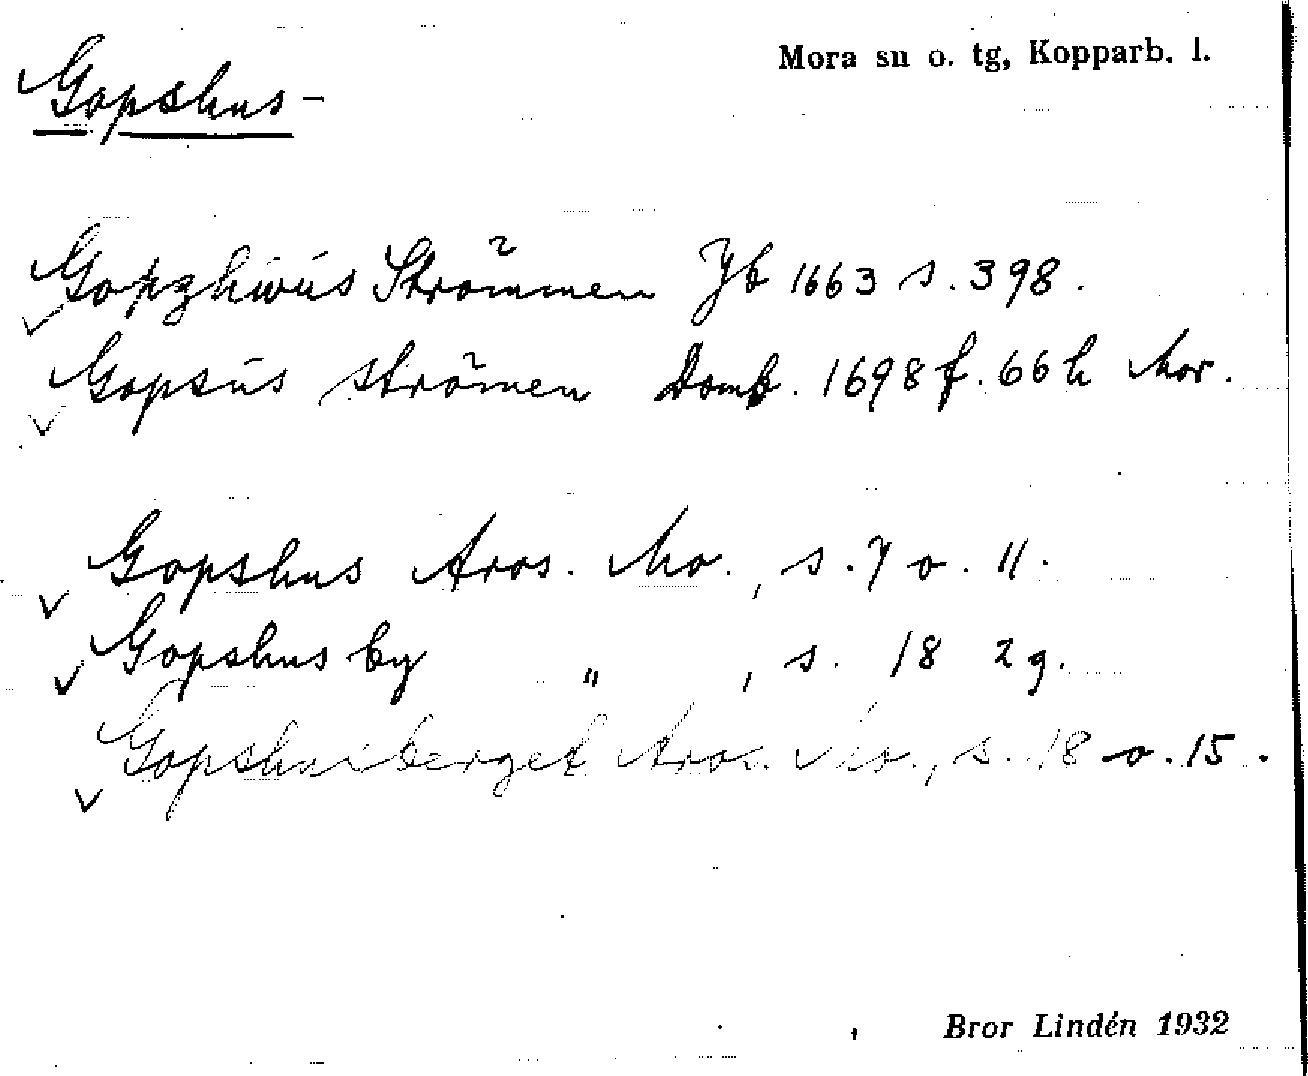 Mora sn o. tg, Kopparb. l.
Gopshus-
Gopzhwus Strömmen Jb 1663 s. 398.
Gopsus strömen Domb. 1698 f. 66 h Mor.
Gopshus Aros. Mo., s. 7 o. 11.
Gopshus by " , s. 18 2g.
Gopshusberget Aros. Mo., s. 18 o. 15.
Bror Lindén 1932